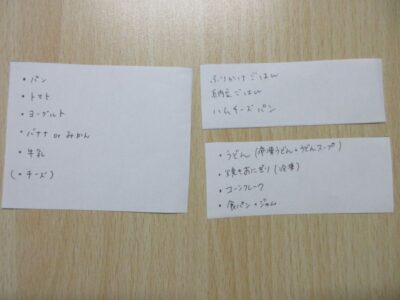 ・パン
・トマト
・ヨーグルト
・バナナ or みかん
・牛乳
(・チーズ)
ふりかけごはん
納豆ごはん
ハムチーズパン
・うどん (冷凍うどん+うどんスープ)
・焼きおにぎり (冷凍)
・コーンフレーク
・食パン+ジャム